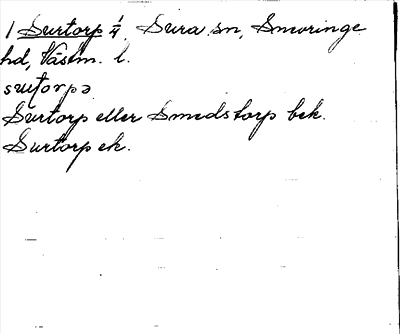 1 Surtorp 1/4, Sura sn, Snevringe
hd, Västm. l.
suṭorpə
Surtorp eller Smedstorp bek.
Surtorp ek.